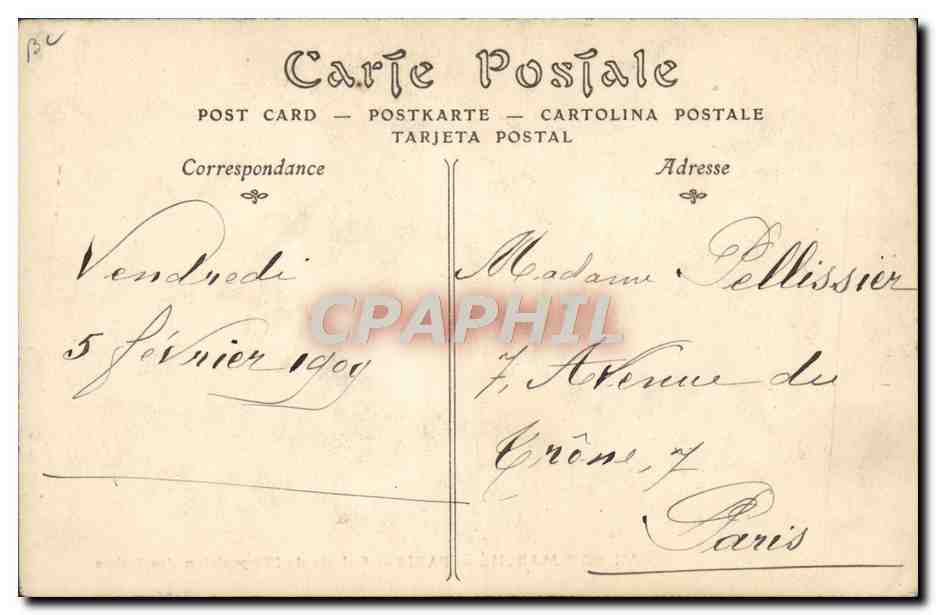 Carte Postale
POST CARD — POSTKARTE — CARTOLINA POSTALE
TARJETA POSTAL
Correspondance
Adresse
Vendredi
5 février 1909
Madame Pellissier
7, Avenue du
Trône, 7
Paris
CPAPHIL